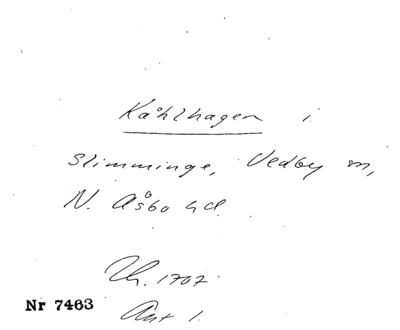 Kåhlhagen i
Slimminge, Vedby sn,
N. Åsbo hd.
Th. 1707.
Nr 7463
Ant 1.